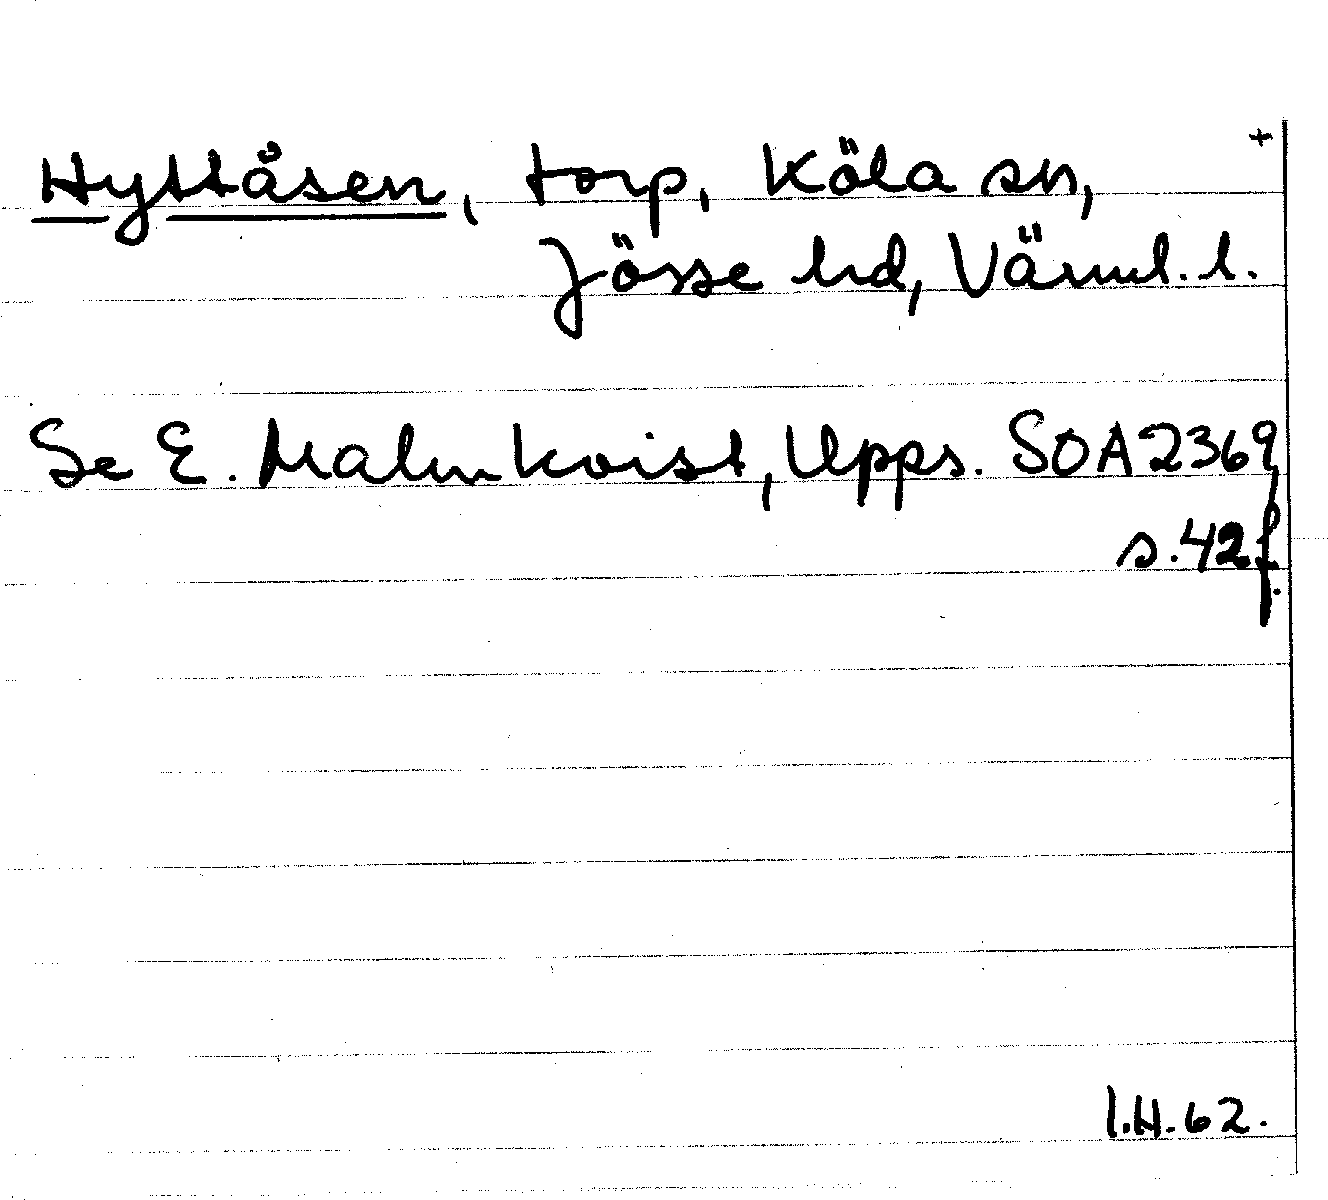 +
Hyttåsen, torp, Köla sn,
Jösse hd, Värml. l.
Se E. Malmkvist, Upps. SOA 2369,
s. 42 f.
I.H. 62.